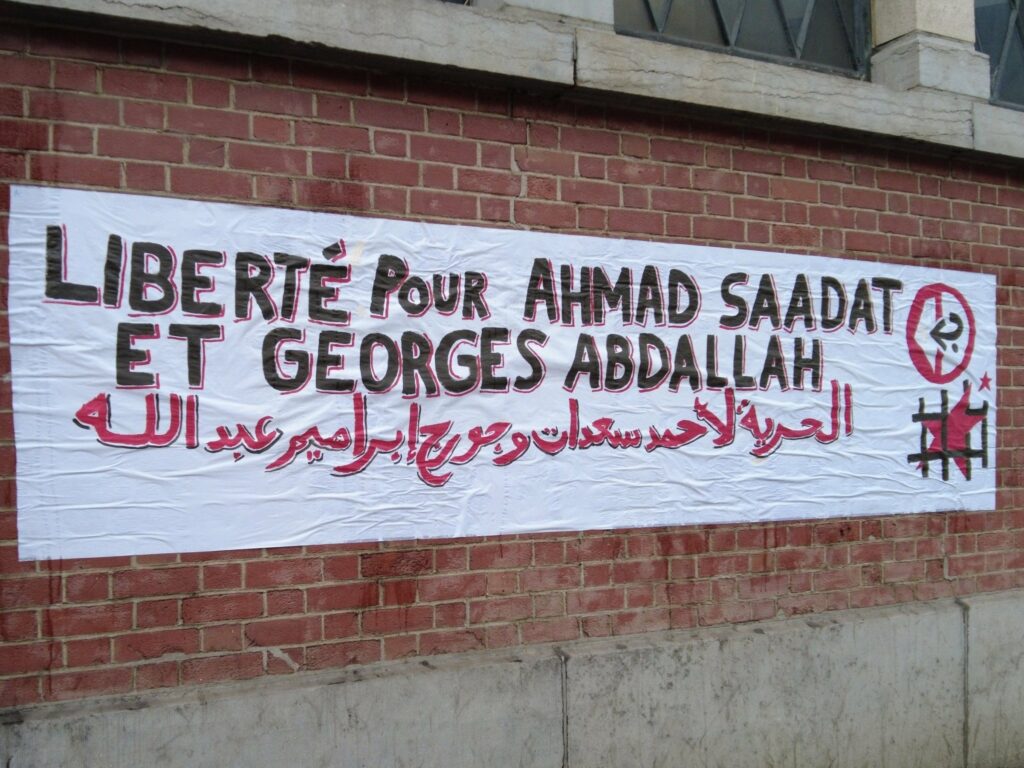 LIBERTÉ POUR AHMAD SAADAT
ET GEORGES ABDALLAH
الحرية لأحمد سعدات وجورج إبراهيم عبد الله